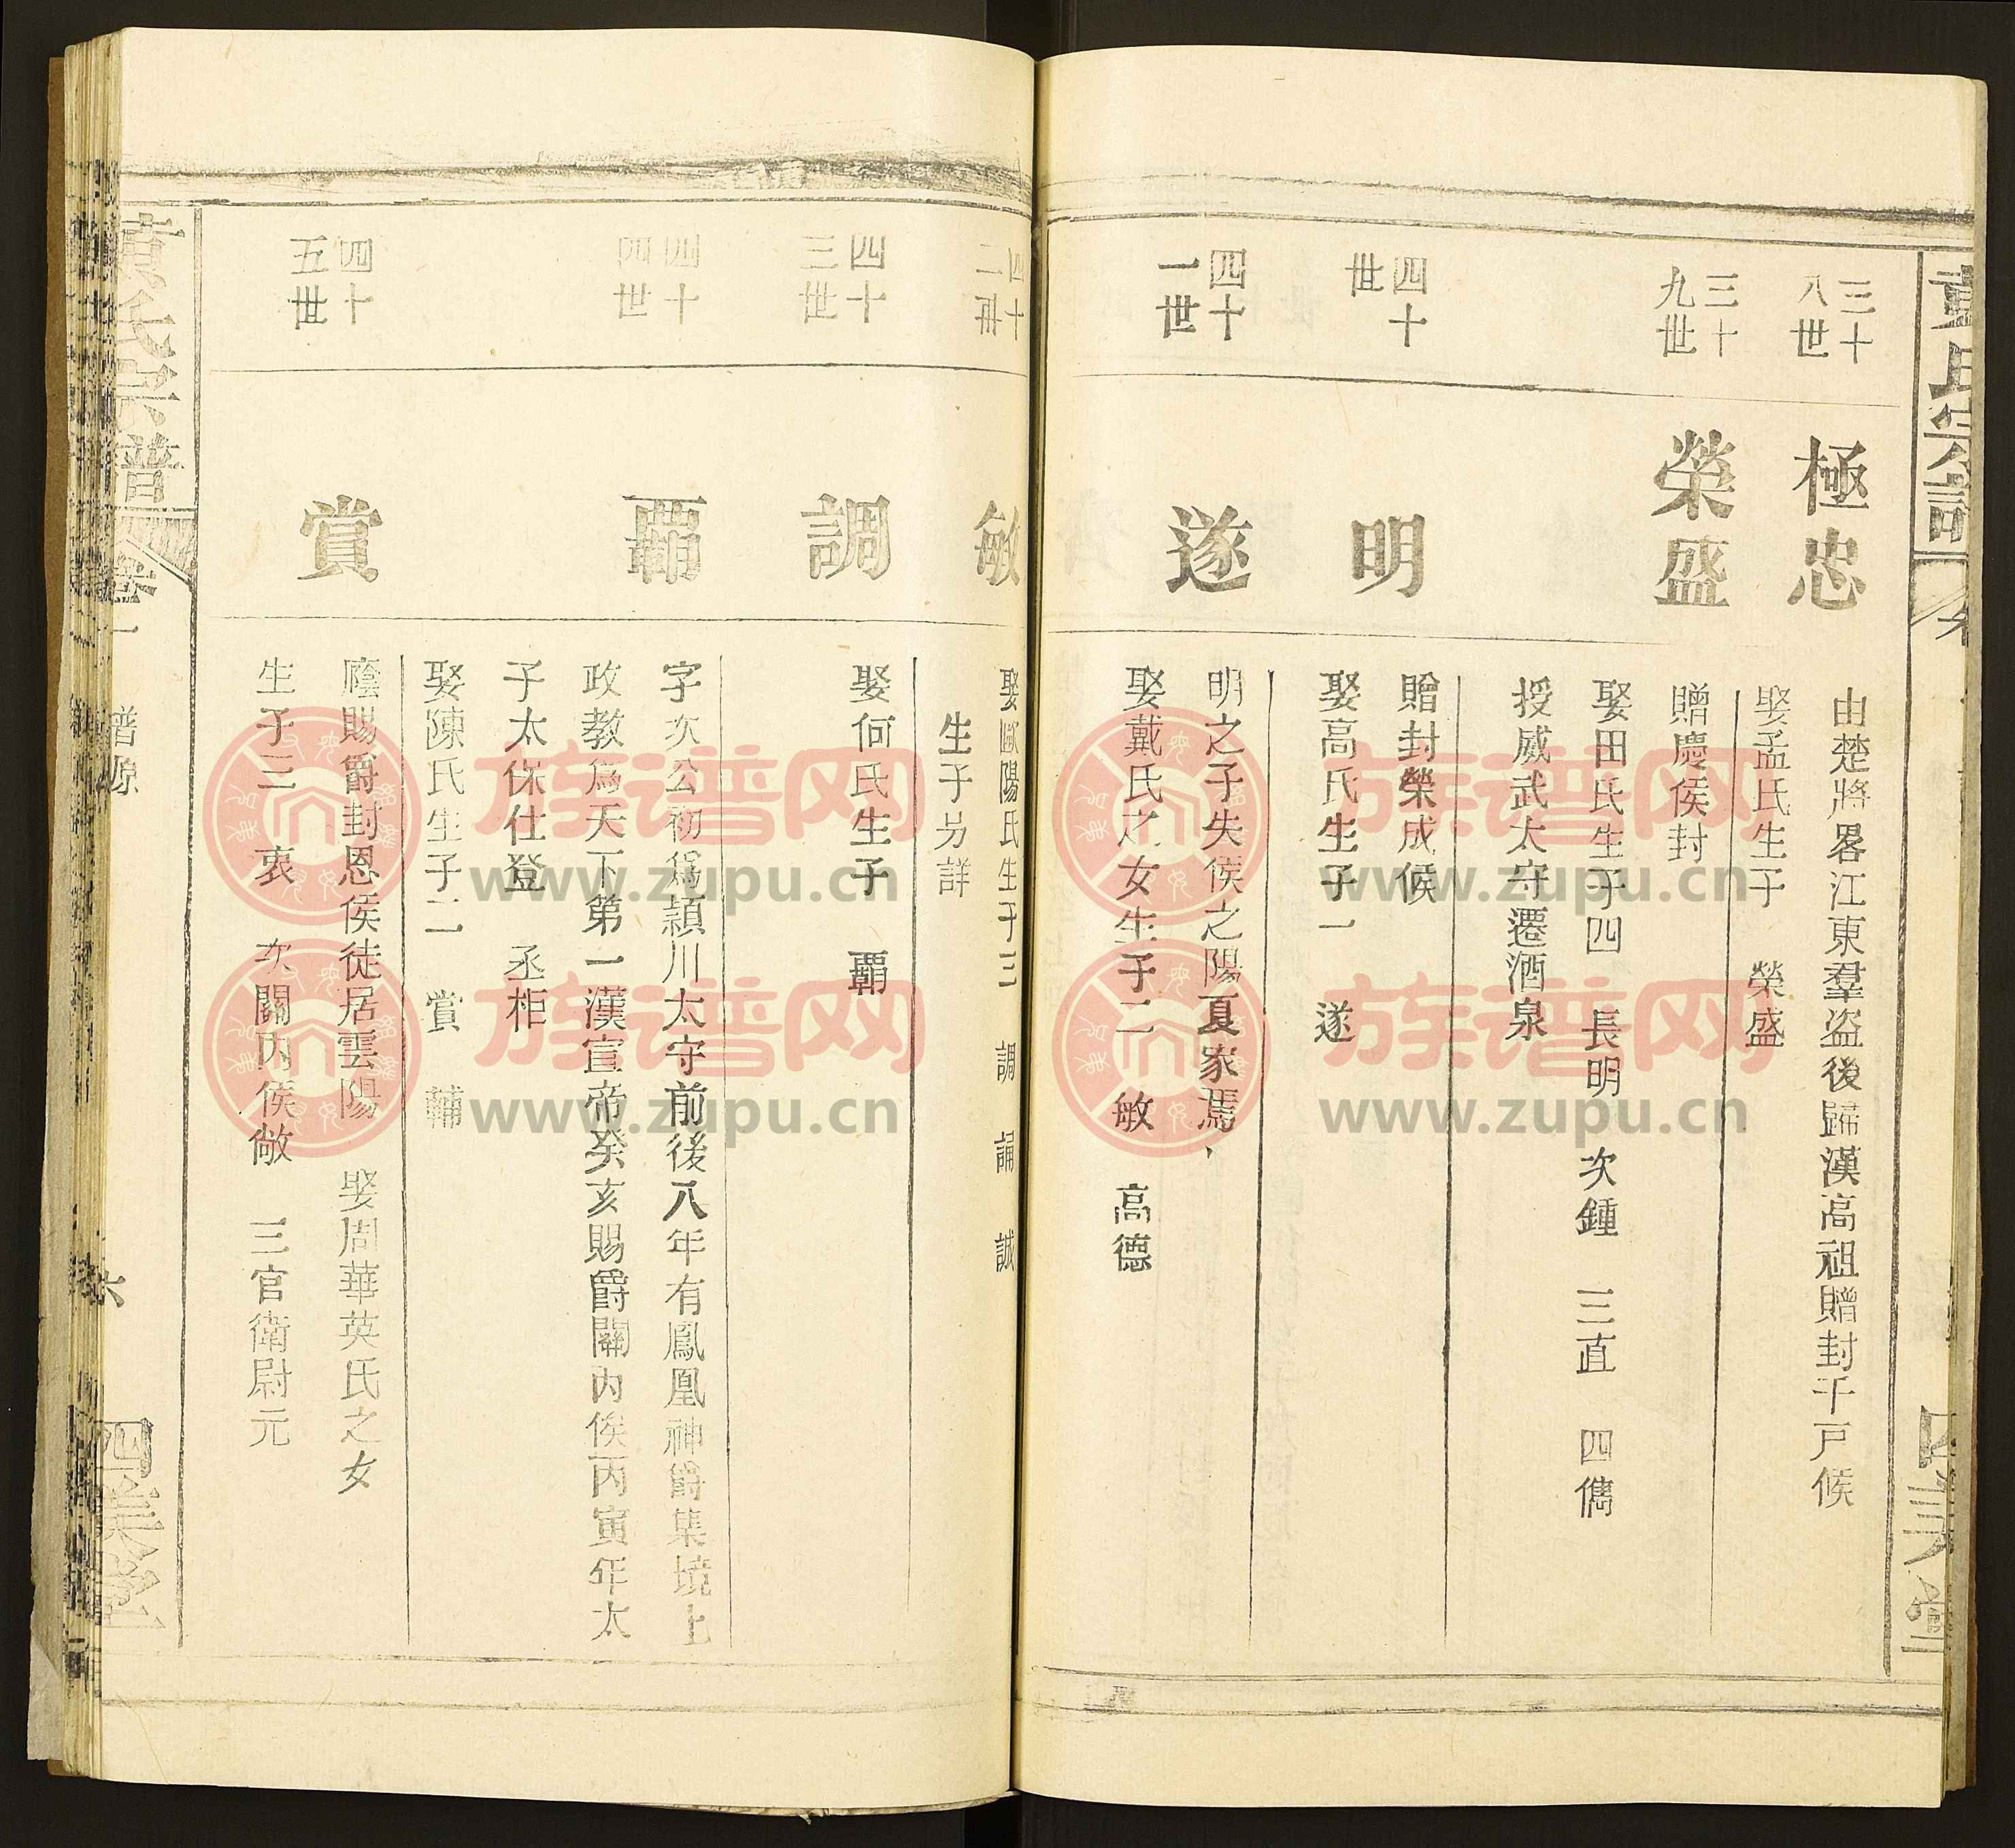 三十
八世
極忠
由楚將畧江東羣盜後歸漢高祖贈封千戸候
娶孟氏生子 榮盛
三十
九世
榮盛
贈慶侯封
娶田氏生子四 長明 次鍾 三直 四儁
授威武太守遷酒泉
四十
世
明
贈封榮成候
娶高氏生子一 遂
四十
一世
遂
明之子失侯之陽夏家焉
娶戴氏之女生子二 敏 高德
四十
二世
敏
娶歐陽氏生子三 調 誦 誠
生子另詳
四十
三世
調
娶何氏生子 覇
四十
四世
覇
字次公初為頴川太守前後八年有鳳凰神爵集境上
政教為天下第一漢宣帝癸亥賜爵關內侯丙寅年太
子太保仕登 丞柜
娶陳氏生子二 賞 輔
四十
五世
賞
廕賜爵封恩侯徒居雲陽 娶周華英氏之女
生子三 衷 次關內侯敞 三官衛尉元
氏宗譜
卷一
譜源
六
四美堂
族谱网
www.zupu.cn
族谱网
www.zupu.cn
族谱网
www.zupu.cn
族谱网
www.zupu.cn